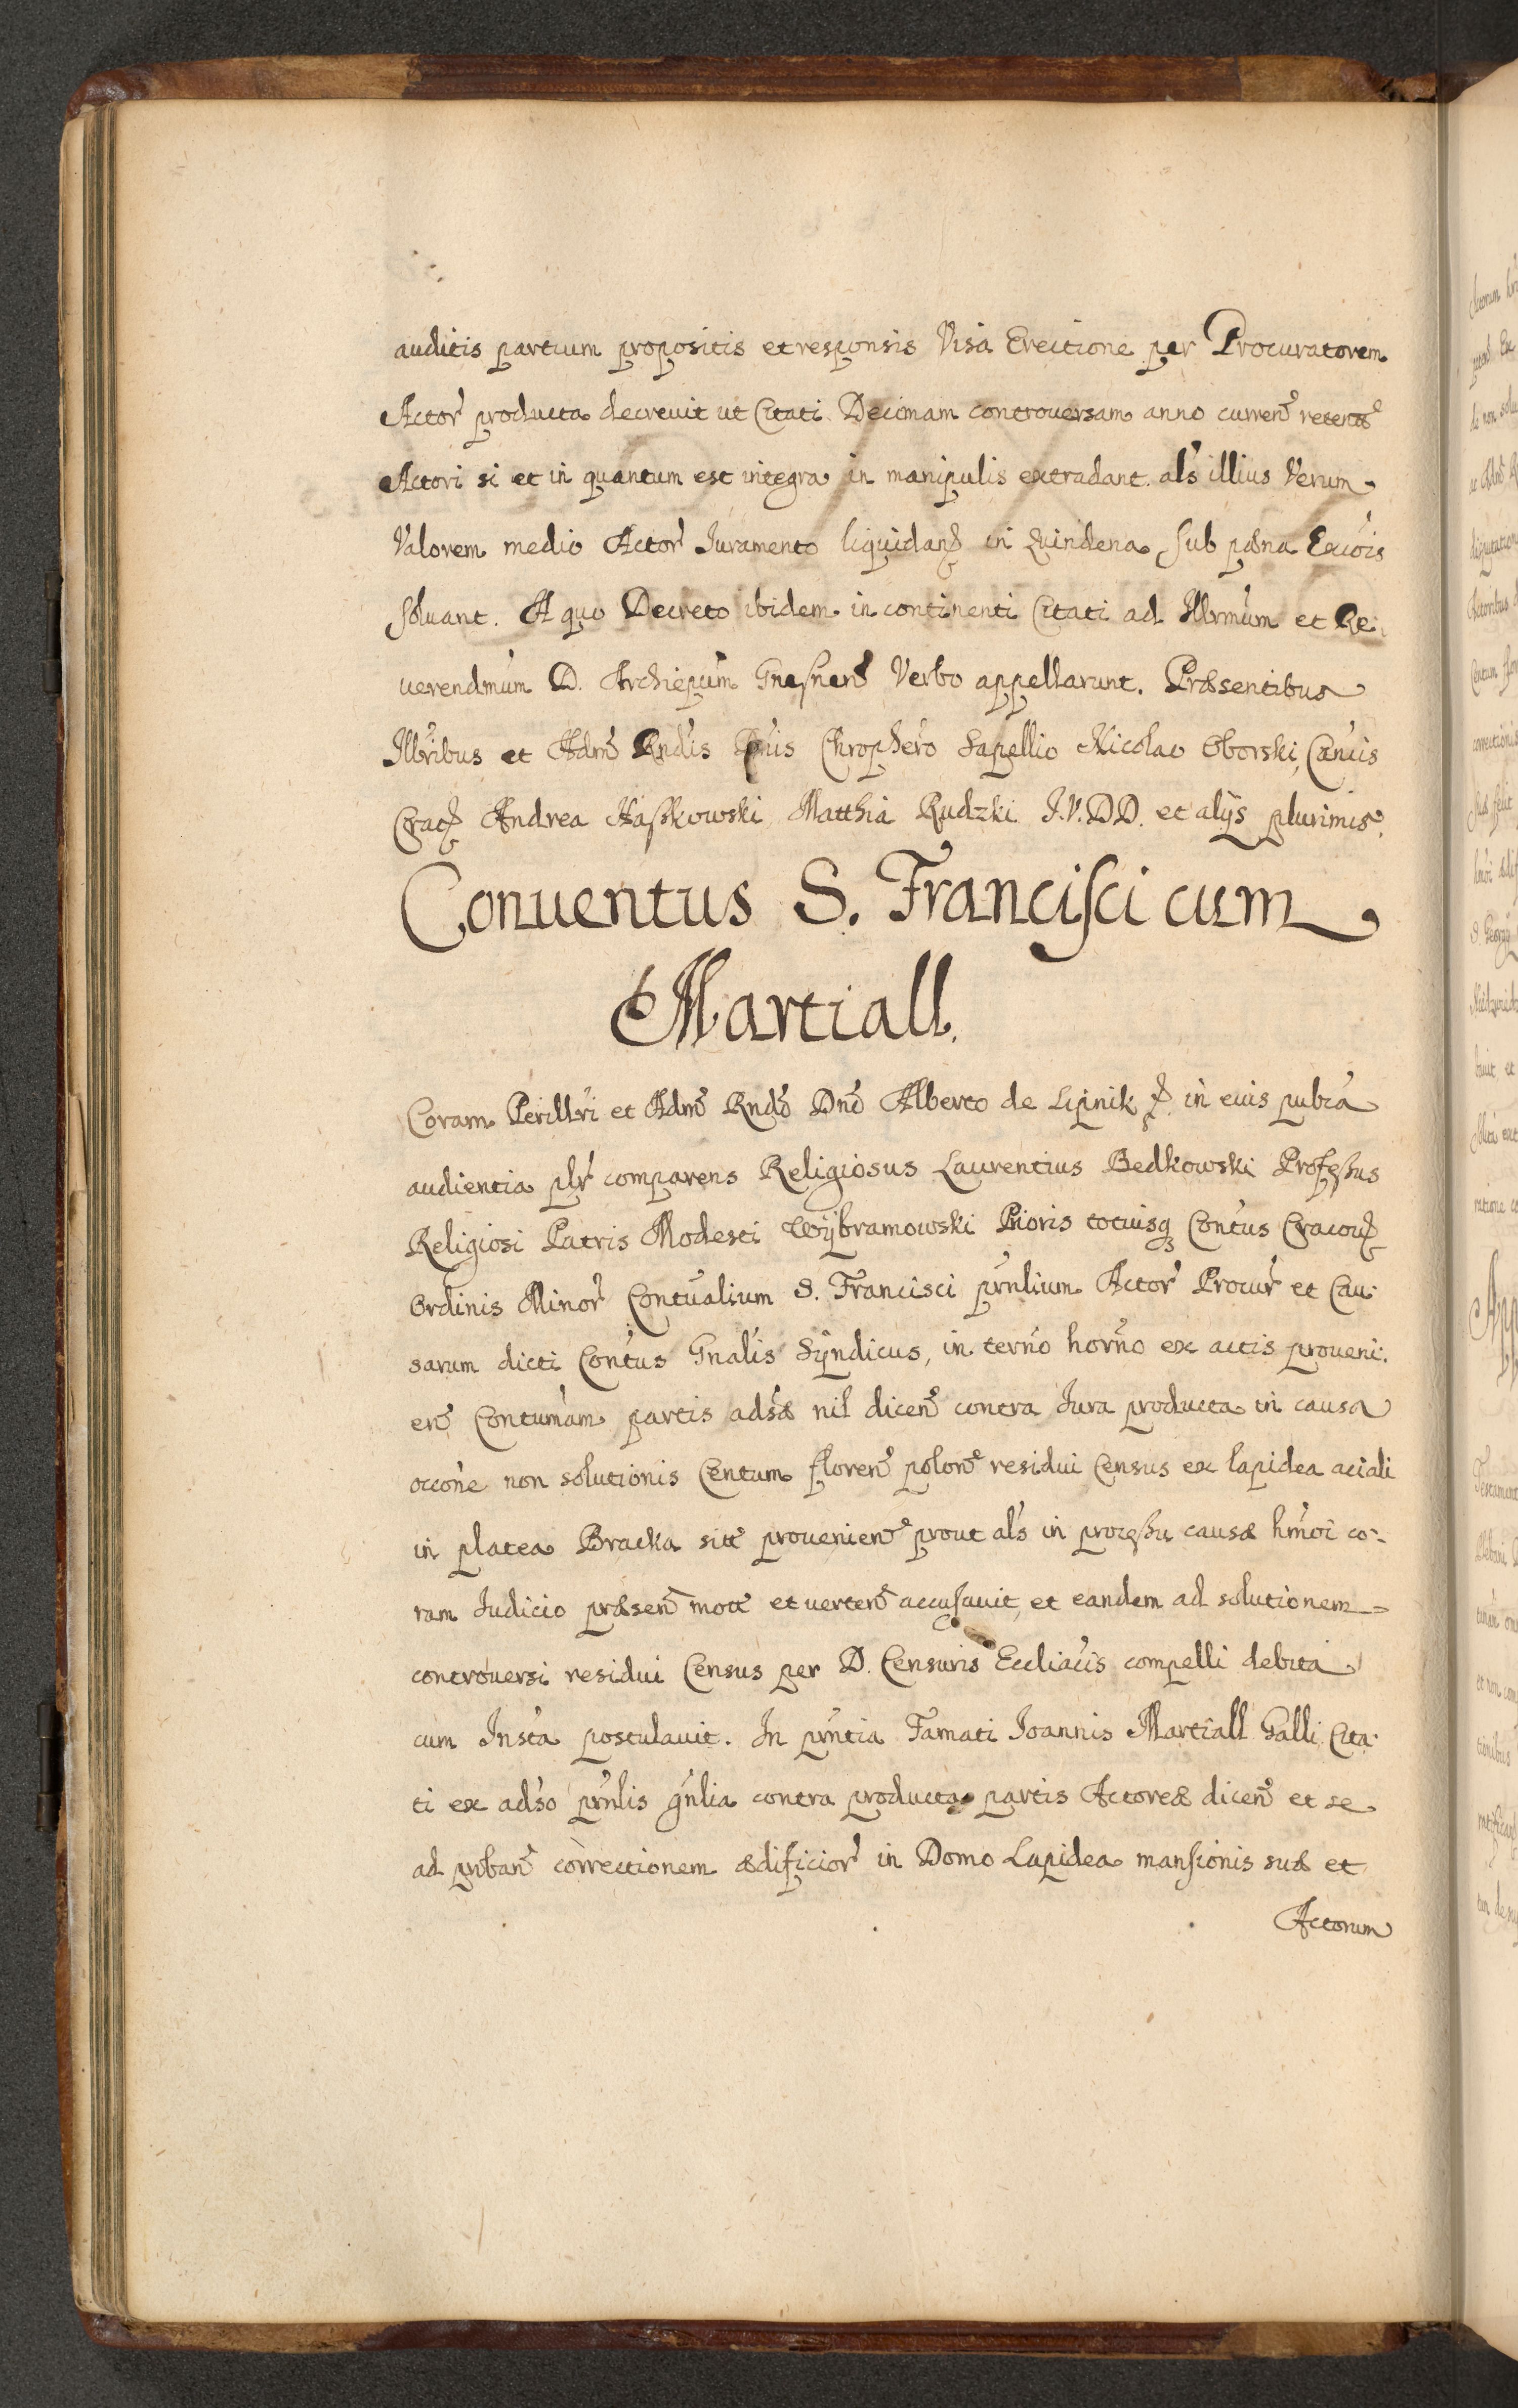 auditis partium propositis et responsis Visa Erectione per Procuratorem
Actor̃ producta decreuit ut Citati Decimam controuersam anno curren̄ retentã
Actori si et in quantum est integra in manipulis extradant. als̃ illius Verum
Valorem medio Actor̃ Iuramento liquidand in Quindena sub pœna Excõis
soluant. A quo Decreto ibidem in continenti Citati ad Illrmũm et Re:
uerendmũm D. Archiepũm Gnesnen̄ Verbo appellarunt. Præsentibus
Illrĩbus et Adm̃ Rndĩs Dnĩs Chrophẽro Sapellio Nicolao Oborski, Canĩcis
Crac Andrea Kaßkowski Matthia Rudzki I.V.DD. et alijs plurimis.
Conuentus S. Francisci cum
Martiall.
Coram Perillrĩ et Adm̃ Rndõ Dnõ Alberto de Lipnik in eius publcã
audientia plr̃ comparens Religiosus Laurentius Bedkowski Profeßus
Religiosi Patris Modesti Wÿbramowski Prioris totiusq Contũs Cracou
Ordinis Minor̃ Contũalium S. Francisci prñlium Actor̃ Procur̃ et Cau:
sarum dicti Contũs Gnalĩs Sÿndicus, in terñо horñо ex actis proueni:
en̄ Contumãm partis adsæ̃ nil dicen̄ contra Iura producta in causa
occõne non solutionis Centum floren̄ polon̄ residui Census ex lapidea aciali
in platea Bracka sitt̃ prouenien̄ prout als̃ in proceßu causæ hmõi co:
ram Iudicio præsen̄ mott̃ et uerten̄ accusauit, et eandem ad solutionem
controuersi residui Census per D. Censuris Eccliacĩs compelli debita
cum Instã postulauit. In prñtia Famati Ioannis Martiall Galli Cita:
ti ex adsõ prñlis gñlia contra producta partis Actoreæ dicen̄ et se
ad prõban̄ correctionem ædificior̃ in Domo Lapidea mansionis suæ et
Actorum